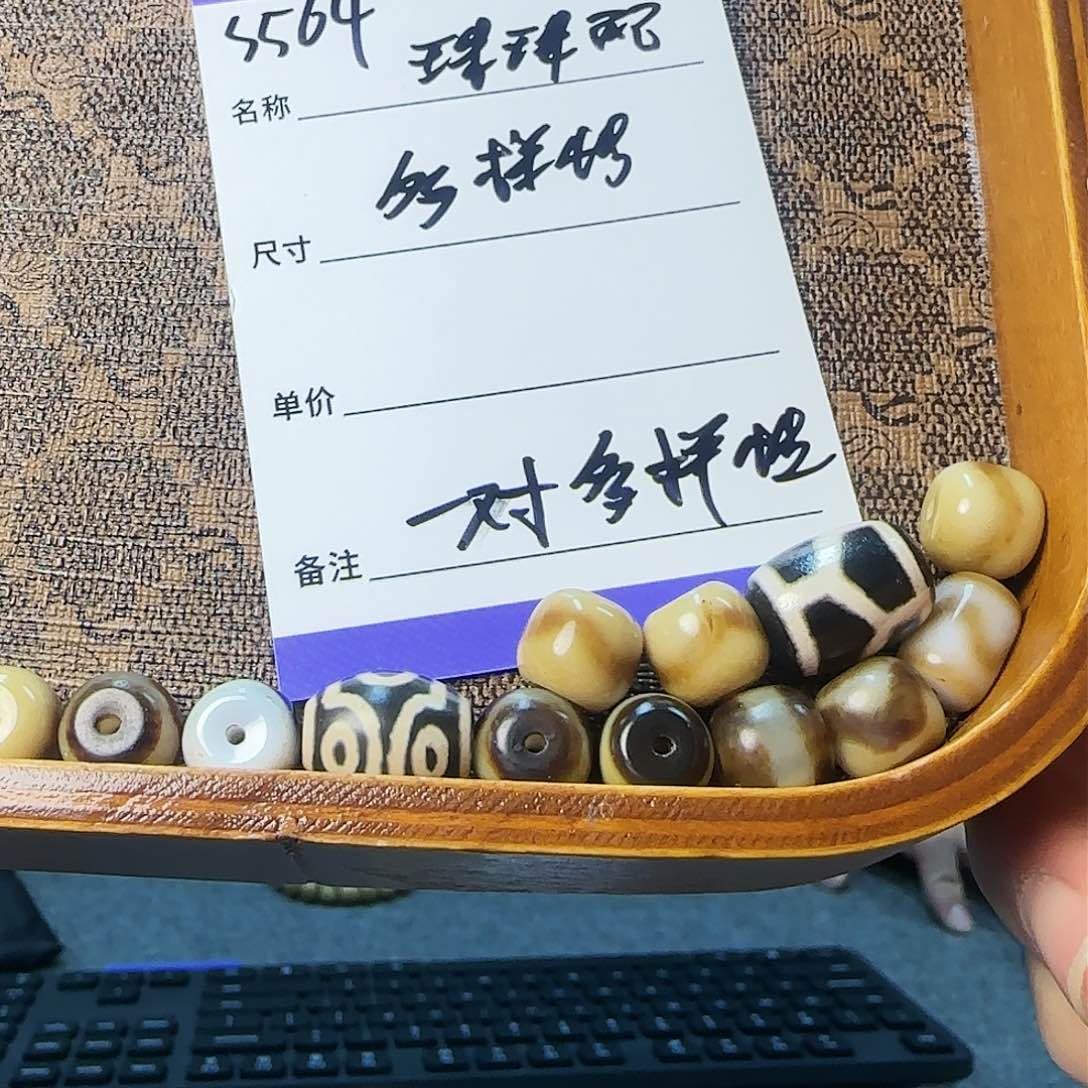 5564
珠珠配
名称
多样性
尺寸
单价
一对多样性
备注